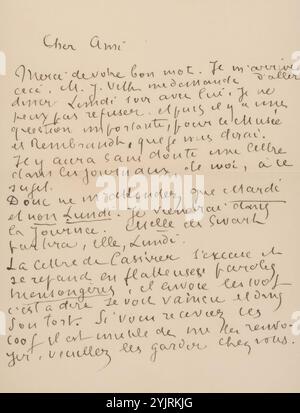 Cher Ami
Merci de votre bon mot. Je m'arrive
ceci. M. J. Veth me demande d'aller
diner Lundi soir avec lui, je ne
peux pas refuser. Et puis il y a une
question importante, pour le Musée
Rembrandt, que je vous dirai.
Il y aura sans doute une lettre
dans les journaux, de moi, à ce
sujet.
Donc ne m'attendez que Mardi
et non Lundi. Je viendrai dans
la journée. Mlle de Swarth
partira, elle, Lundi.
La lettre de Cassirer s'excuse et
se repand en flatteuses paroles
mensongères, il envoie les 1000f
c'est à dire se voit vaincu et dans
son tort. Si vous recevez les
1000f il est inutile de me les renvo-
yer, veuillez les garder chez vous.
alamy
Image ID: 2YJRKJG
www.alamy.com